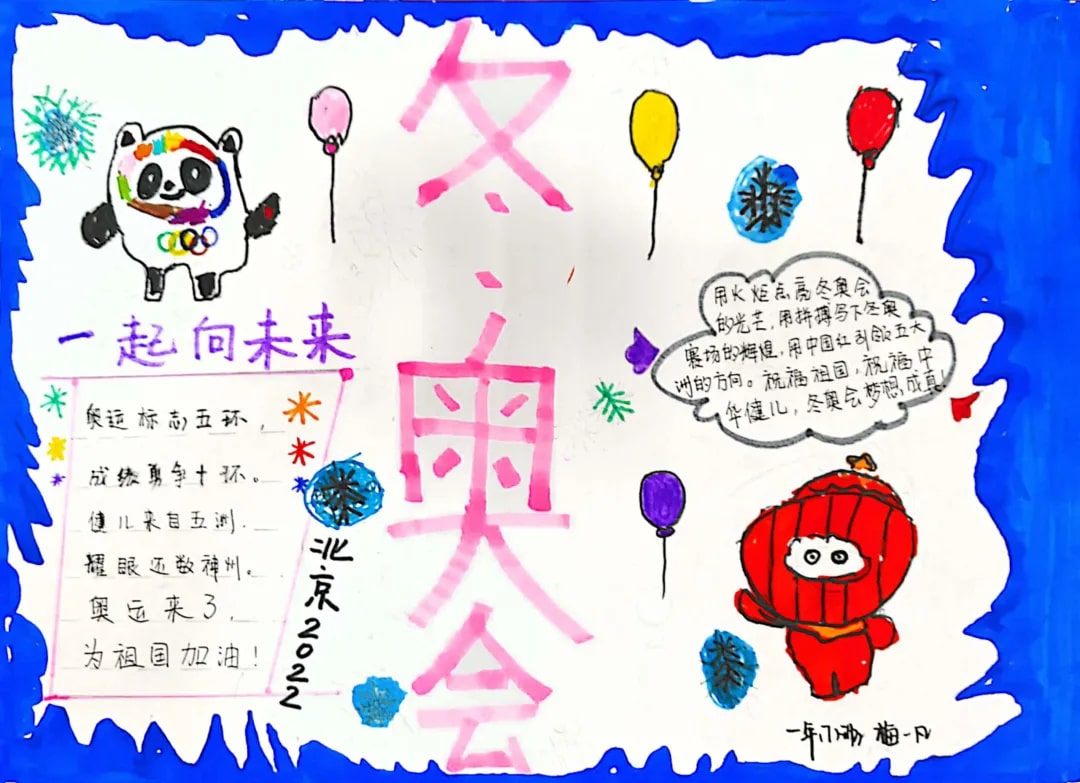 冬奥会
一起向未来
奥运标志五环，
成绩勇争十环。
健儿来自五洲，
耀眼还数神州。
奥运来了，
为祖国加油！
北京2022
用火炬点亮冬奥会
的光芒，用拼搏写下冬奥
赛场的辉煌，用中国红引领五大
洲的方向。祝福祖国，祝福中
华健儿，冬奥会梦想成真！
一年 梅一凡